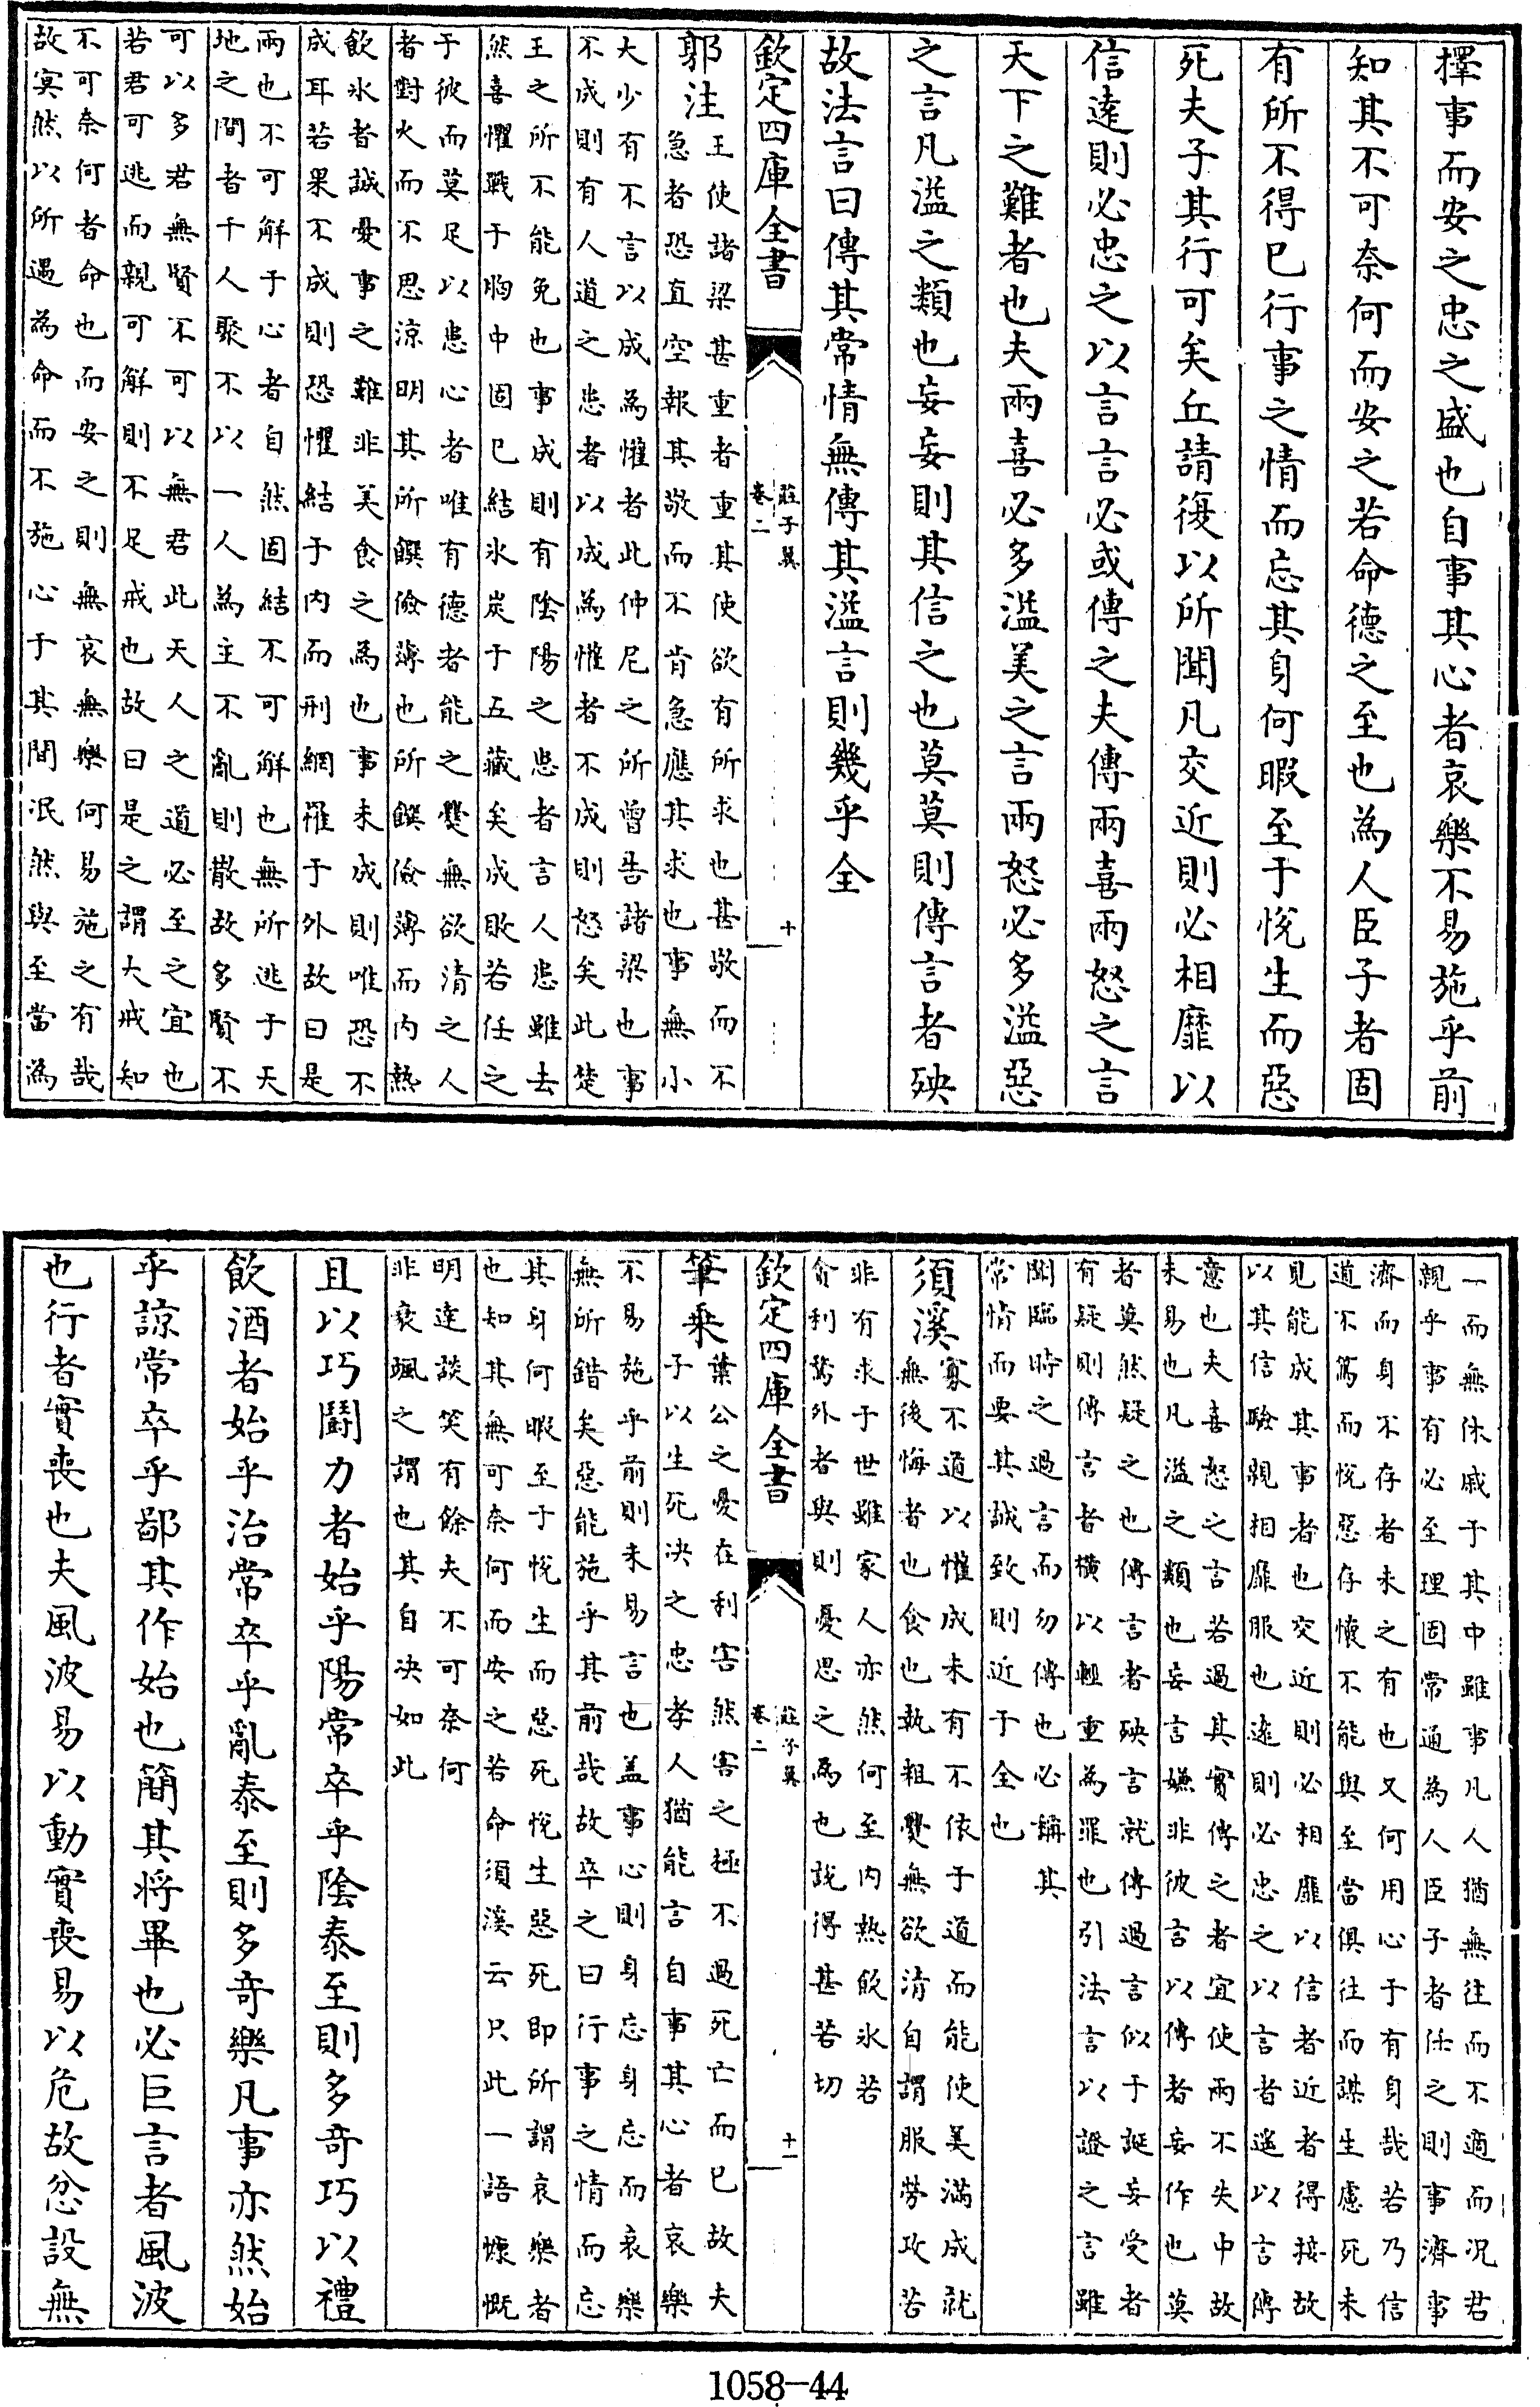 擇事而安之忠之盛也自事其心者哀樂不易施乎前
知其不可奈何而安之若命德之至也為人臣子者固
有所不得已行事之情而忘其身何暇至于悅生而惡
死夫子其行可矣丘請復以所聞凡交近則必相靡以
信遠則必忠之以言言必或傳之夫傳兩喜兩怒之言
天下之難者也夫兩喜必多溢美之言兩怒必多溢惡
之言凡溢之類也妄妄則其信之也莫莫則傳言者殃
故法言曰傳其常情無傳其溢言則幾乎全
欽定四庫全書
莊子翼
卷二
十
郭注
王使諸梁甚重者重其使欲有所求也甚敬而不
急者恐直空報其敬而不肯急應其求也事無小
大少有不言以成為懽者此仲尼之所曾告諸梁也事
不成則有人道之患者以成為懽者不成則怒矣此楚
王之所不能免也事成則有陰陽之患者言人患雖去
然喜懼戰于胸中固已結氷炭于五藏矣成敗若任之
于彼而莫足以患心者唯有德者能之爨無欲清之人
者對火而不思涼明其所饌儉薄也所饌儉薄而內熱
飲氷者誠憂事之難非美食之為也事未成則唯恐不
成耳若果不成則恐懼結于內而刑網罹于外故曰是
兩也不可解于心者自然固結不可解也無所逃于天
地之間者千人聚不以一人為主不亂則散故多賢不
可以多君無賢不可以無君此天人之道必至之宜也
若君可逃而親可解則不足戒也故曰是之謂大戒知
不可奈何者命也而安之則無哀無樂何易施之有哉
故冥然以所遇為命而不施心于其間泯然與至當為
一而無休戚于其中雖事凡人猶無往而不適而況君
親乎事有必至理固常通為人臣子者任之則事濟事
濟而身不存者未之有也又何用心于有身哉若乃信
道不篤而悅惡存懷不能與至當俱往而謀生慮死未
見能成其事者也交近則必相靡以信者近者得接故
以其信驗親相靡服也遠則必忠之以言者遙以言傳
意也夫喜怒之言若過其實傳之者宜使兩不失中故
未易也凡溢之類也妄言嫌非彼言以傳者妄作也莫
者莫然疑之也傳言者殃言就傳過言似于誕妄受者
有疑則傳言者橫以輕重為罪也引法言以證之言雖
聞臨時之過言而勿傳也必稱其
常情而要其誠致則近于全也
須溪
寡不道以懽成未有不依于道而能使美滿成就
無後悔者也食也執粗爨無欲清自謂服勞攻苦
非有求于世雖家人亦然何至內熱飲氷若
貪利騖外者與則憂思之為也說得甚若切
欽定四庫全書
莊子翼
卷二
十一
筆乘
葉公之憂在利害然害之極不過死亡而已故夫
子以生死決之忠孝人猶能言自事其心者哀樂
不易施乎前則未易言也盖事心則身忘身忘而哀樂
無所錯矣惡能施乎其前哉故卒之曰行事之情而忘
其身何暇至于悅生而惡死悅生惡死即所謂哀樂者
也知其無可奈何而安之若命須溪云只此一語慷慨
明達談笑有餘夫不可奈何
非衰颯之謂也其自決如此
且以巧鬭力者始乎陽常卒乎陰泰至則多奇巧以禮
飲酒者始乎治常卒乎亂泰至則多奇樂凡事亦然始
乎諒常卒乎鄙其作始也簡其將畢也必巨言者風波
也行者實喪也夫風波易以動實喪易以危故忿設無
1058-44